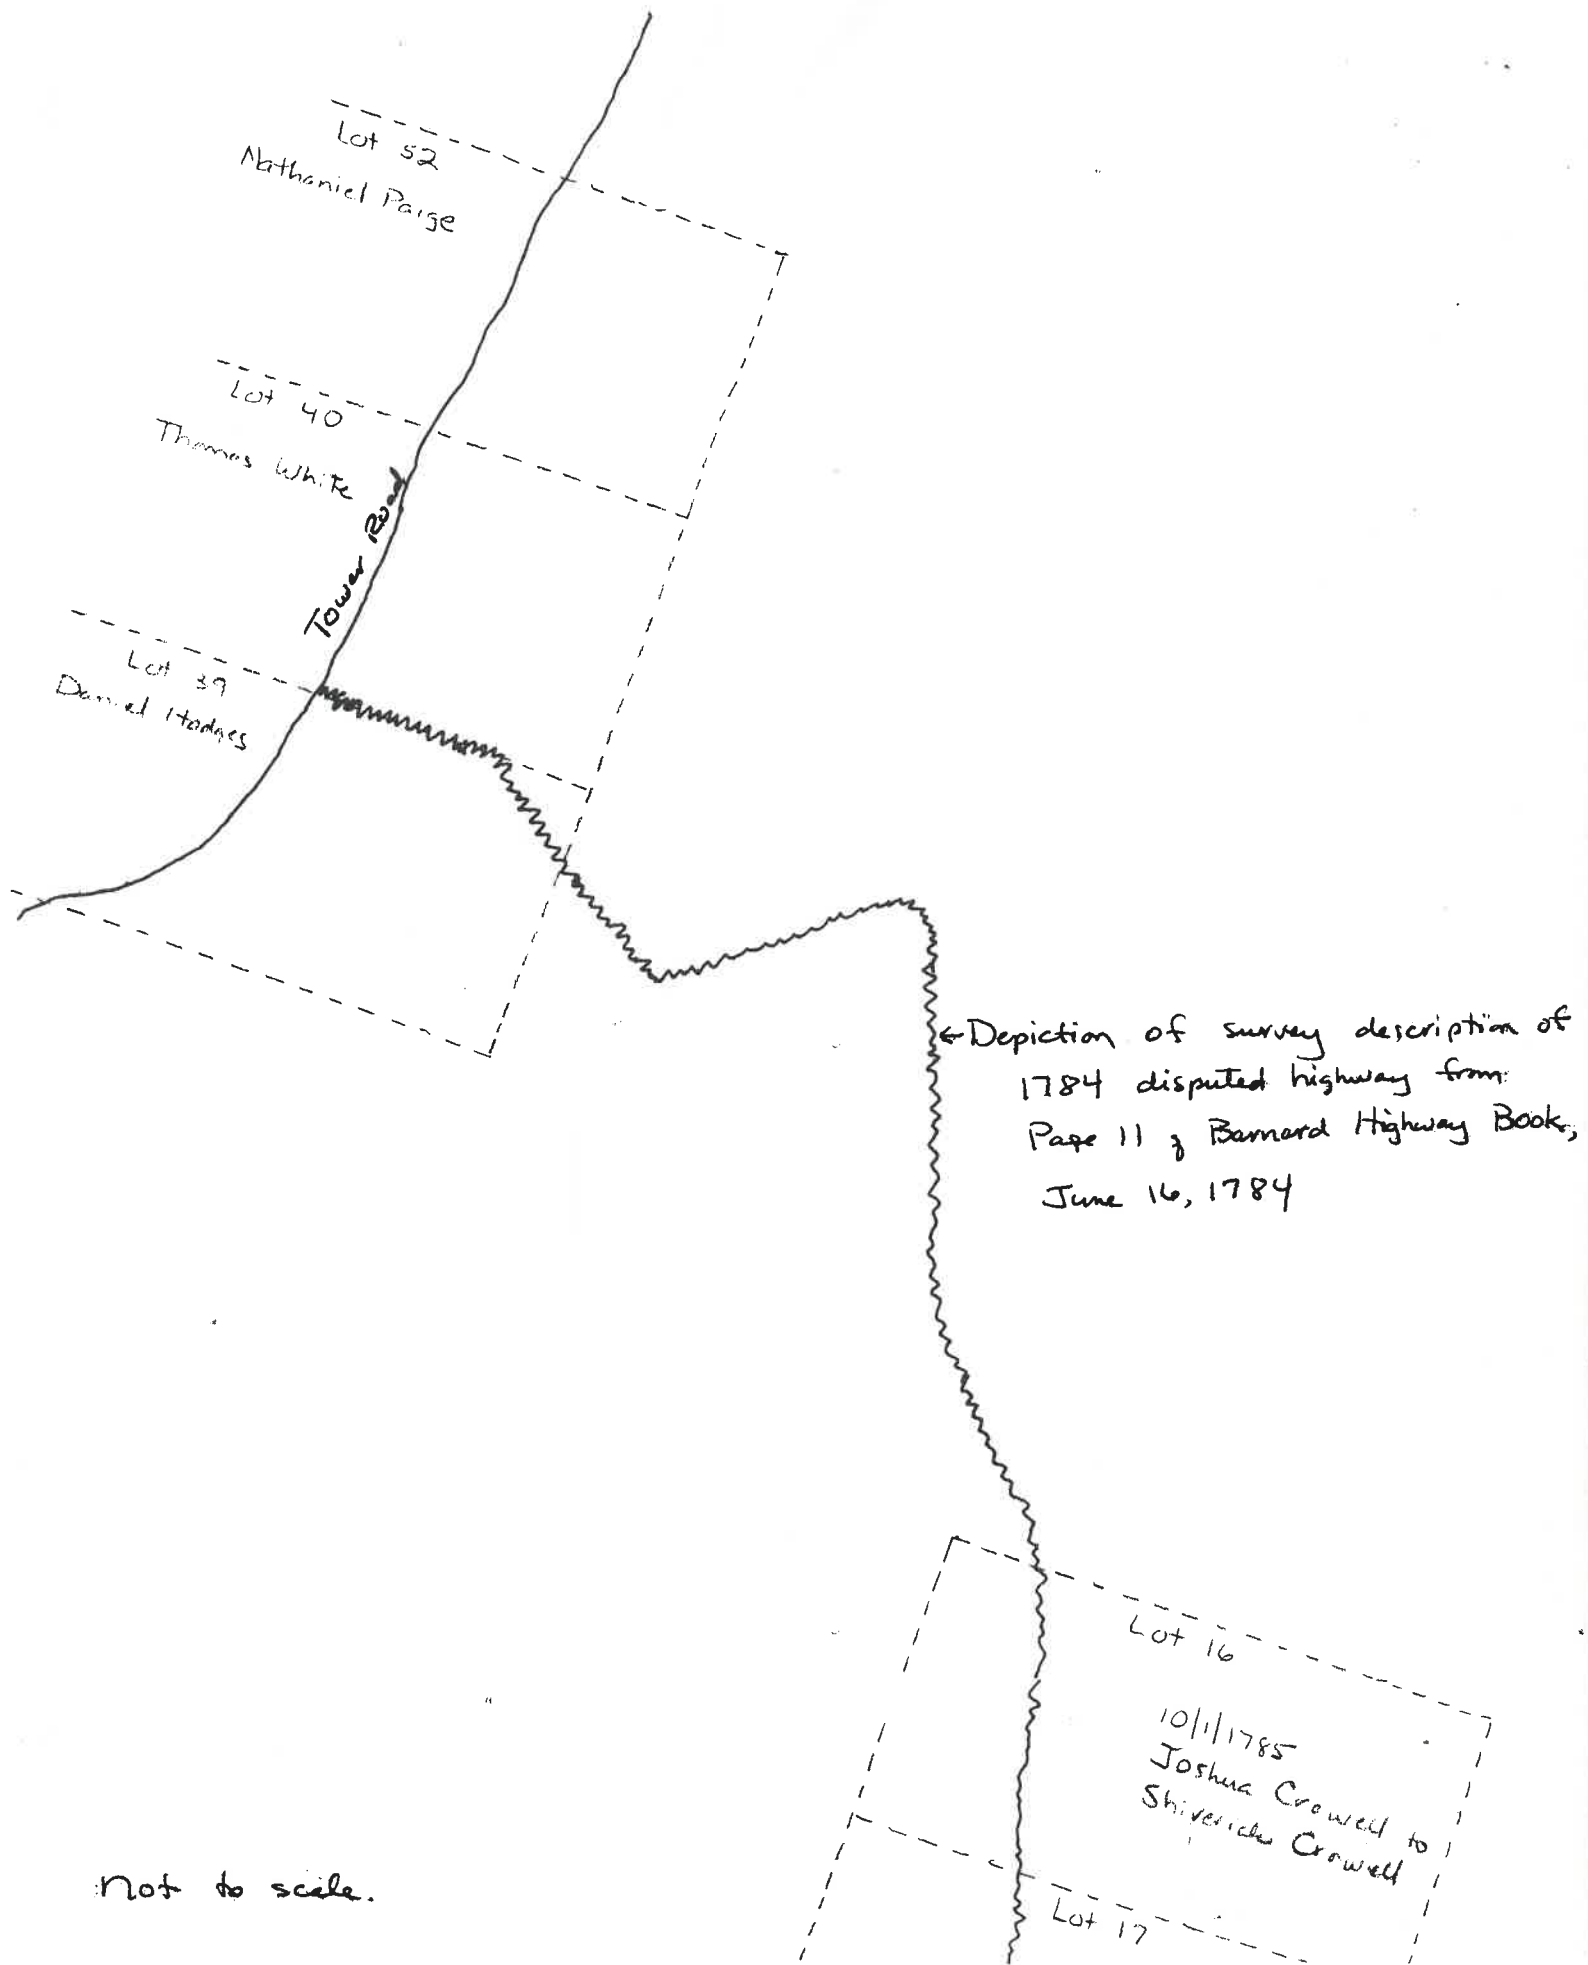 Lot 52
Nathaniel Paige
Lot 40
Thomas White
Tower Road
Lot 39
Daniel Hodges
←Depiction of survey description of
1784 disputed highway from:
Page 11 of Barnard Highway Book,
June 16, 1784
Lot 16
10/1/1785
Joshua Crowell to
Shiverick Crowell
Lot 17
not to scale.